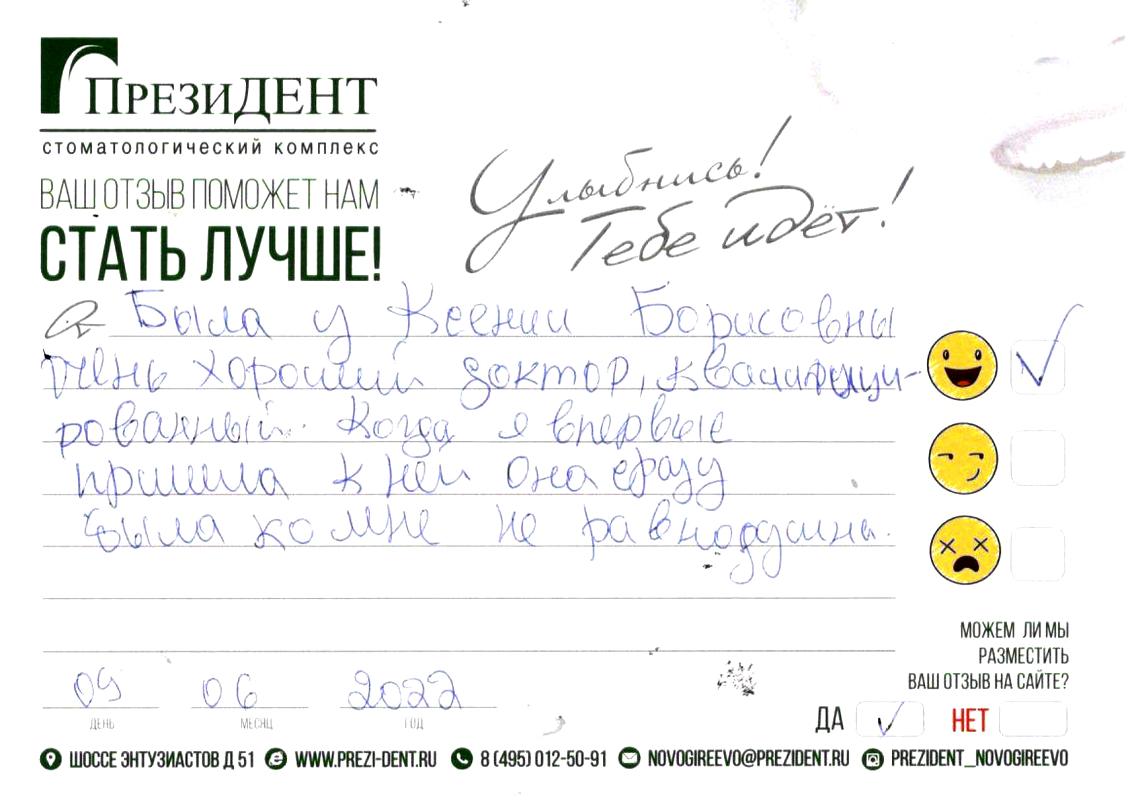 ПРЕЗИДЕНТ
СТОМАТОЛОГИЧЕСКИЙ КОМПЛЕКС
ВАШ ОТЗЫВ ПОМОЖЕТ НАМ
СТАТЬ ЛУЧШЕ!
Улыбнись!
Тебе идёт!
Была у Ксении Борисовны
Очень хороший доктор, квалифици-
рованный. Когда я впервые
пришла к ней она сразу
была ко мне не равнодушна.
09 06 2022
ДЕНЬ МЕСЯЦ ГОД
МОЖЕМ ЛИ МЫ
РАЗМЕСТИТЬ
ВАШ ОТЗЫВ НА САЙТЕ?
ДА НЕТ
ШОССЕ ЭНТУЗИАСТОВ Д 51 WWW.PREZI-DENT.RU 8 (495) 012-50-91 NOVOGIREEVO@PREZIDENT.RU PREZIDENT_NOVOGIREEVO